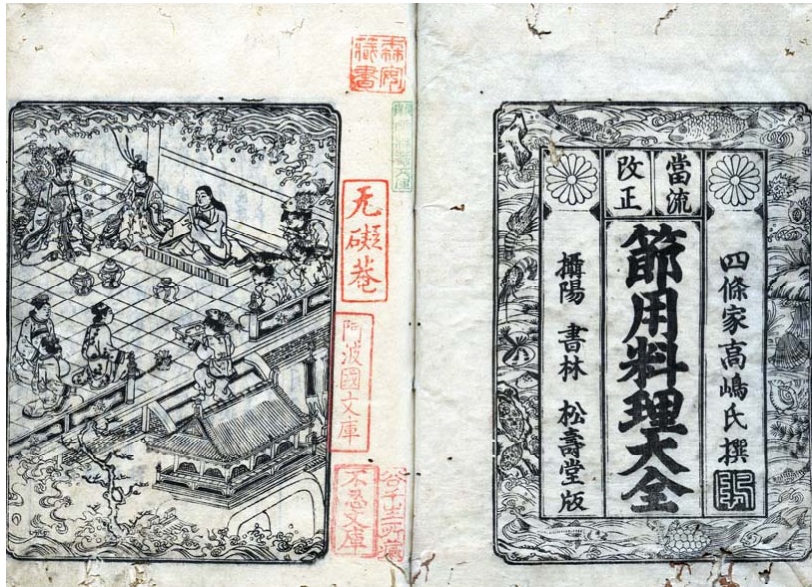 當流
改正
四條家高嶋氏撰
節用料理大全
攝陽 書林 松壽堂版
无礙菴
阿波國文庫
不忍文庫